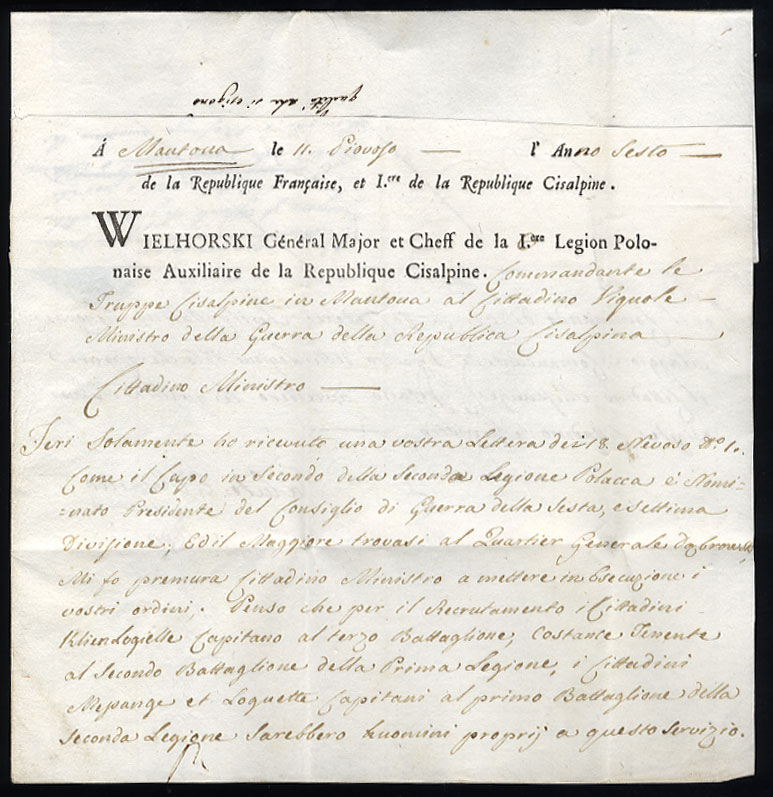 qualità che si esigono
À Mantoua le 11. Piovoso l' Anno Sesto
de la Republique Française, et I.ere de la Republique Cisalpine.
WIELHORSKI Général Major et Cheff de la I.ere Legion Polo-
naise Auxiliaire de la Republique Cisalpine. Commandante le
Truppe Cisalpine in Mantoua al Cittadino Vignole
Ministro della Guerra della Republica Cisalpina
Cittadino Ministro
Jeri Solamente ho ricevuto una vostra Lettera dei 18. Nevoso
Come il Capo in Secondo della Seconda Legione Polacca é Nomi=
=nato Presidente del Consiglio di Guerra della Sesta, e settima
Divisione, Ed il Maggiore trovasi al Quartier Generale
Mi fo premura Cittadino Ministro a mettere in Esecuzione i
vostri ordini. Penso che per il Recrutamento i Cittadini
Klienlogielle Capitano al terzo Battaglione, Costance Tenente
al Secondo Battaglione della Prima Legione, i Cittadini
Mepange et Loquette Capitani al primo Battaglione della
Seconda Legione Sarebbero huomini proprij a questo Servizio.